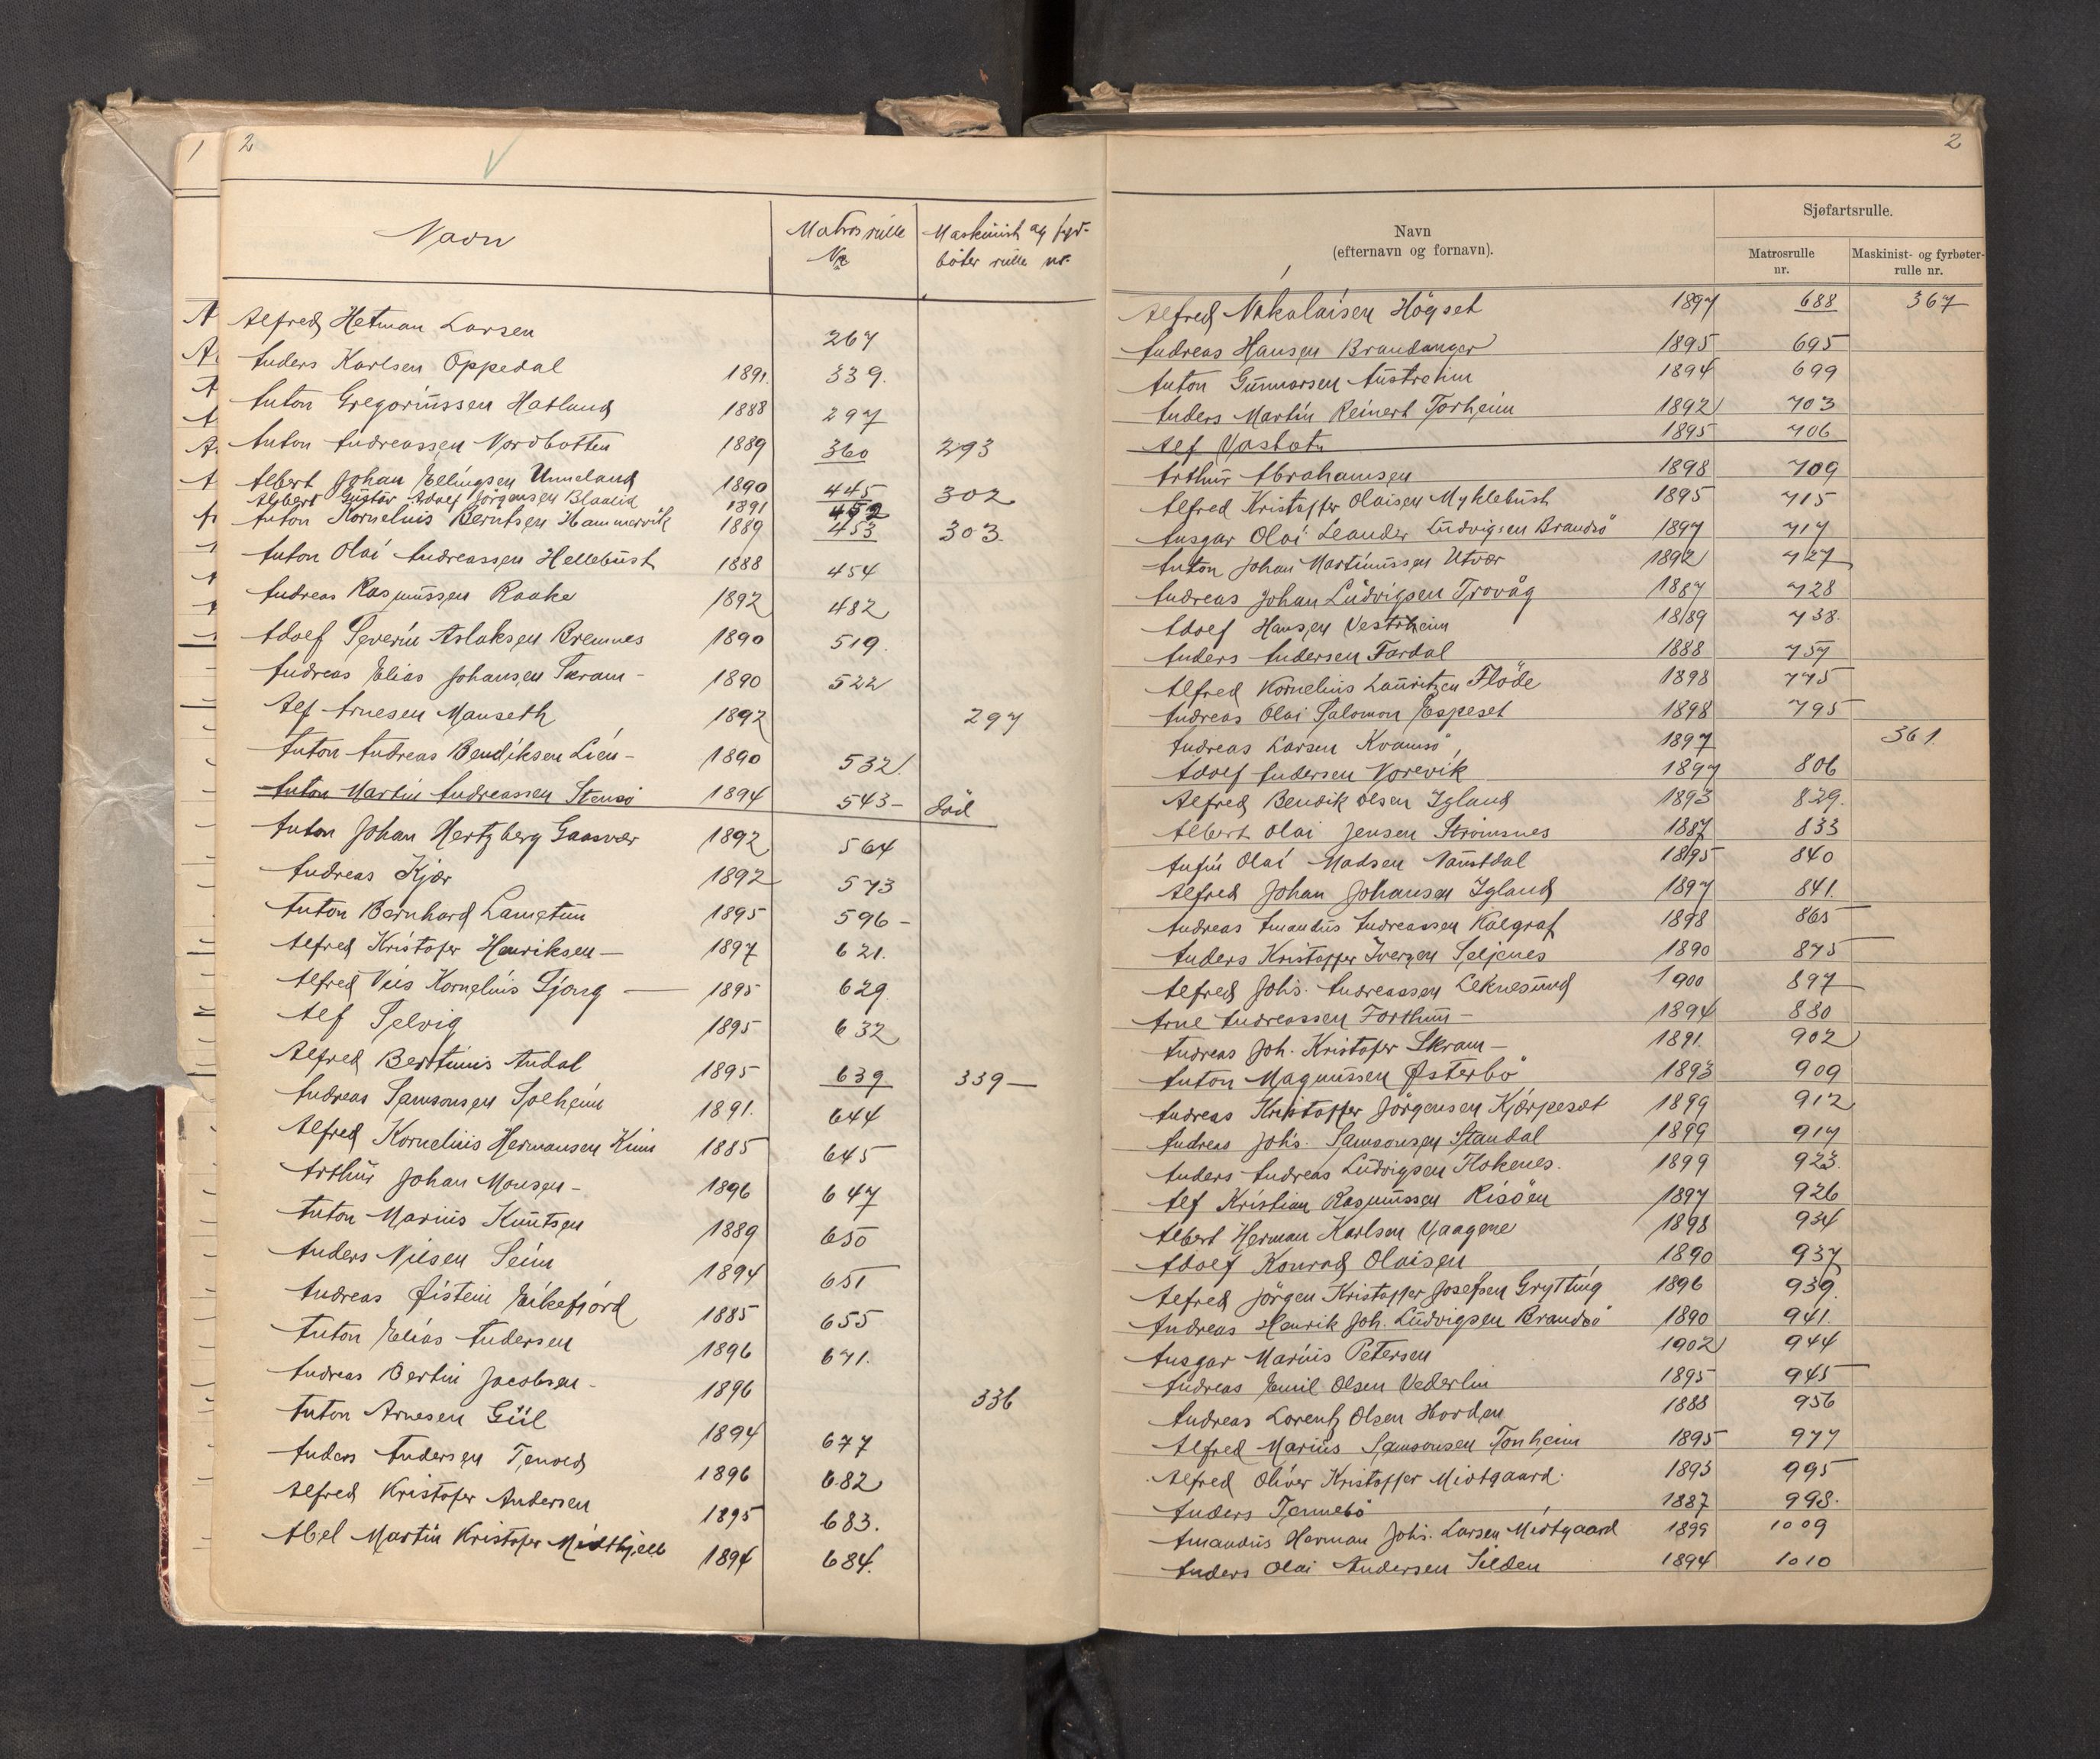 1
2
Navn
Matrosrulle Nr
Maskinist og fyrbøter rulle nr.
Alfred Hetman Larsen 267
Anders Karlsen Oppedal 1891. 339.
Anton Gregoriussen Hatland 1888 297
Anton Andreassen Nordbotten 1889 360 293
Albert Johan Ellingsen Unneland 1890 445 302
Albert Gustav Adolf Jörgensen Blaalid 1891 452
Anton Kornelius Berntsen Hammervik 1889 453 303.
Anton Olai Andreassen Hellebust 1888 454
Andreas Rasmussen Raake 1892 482
Adolf Severin Aslaksen Bremnes 1890 519.
Andreas Elias Johansen Skram - 1890 522
Alf Arnesen Manseth 1892 297
Anton Andreas Bendiksen Lien - 1890 532.
Anton Martin Andreassen Stensö 1894 543- död
Anton Johan Hertzberg Gaasvær 1892 564
Andreas Kjær 1892 573
Anton Bernhard Lametun 1895 596 -
Alfred Kristofer Henriksen - 1897 621.
Alfred Kornelius 1895 629
Alf Selvig 1895 632
Alfred Bertinius Andal 1895 639 339 -
Andreas Samsonsen Solheim 1891. 644
Alfred Kornelius Hermansen Kinn 1885 645
Arthur Johan Monsen - 1896 647
Anton Marius Knutsen 1889 650
Anders Nilsen Seim 1894 651
Andreas Øistein Eikefjord 1885 655
Anton Elias Andersen 1896 671.
Andreas Bertin Jacobsen - 1896 336
Anton Arnesen Gül 1894 677
Anders Andersen Tenold 1896 682
Alfred Kristofer Andersen 1895 683.
Abel Martin Kristofer Midthjell 1894 684.
2
Navn
(efternavn og fornavn).
Sjøfartsrulle.
Matrosrulle nr.
Maskinist- og fyrbøter-rulle nr.
Alfred Nikolaisen Högset 1897 688 367
Andreas Hansen Brandanger 1895 695
Anton Gunnarsen Austreheim 1894 699
Anders Martin Reinert Torheim 1892 703
Alf Vasbotn 1895 706
Arthur Abrahamsen 1898 709
Alfred Kristoffer Olaisen Myklebust 1895 715
Ansgar Olai Leander Ludvigsen Brandsö 1897 717
Anton Johan Martinussen Utvær 1892 727
Andreas Johan Ludvigsen Trovåg 1887 728
Adolf Hansen Vestrheim 1889 738.
Anders Andersen Fardal 1888 757
Alfred Kornelius Lauritzen Flöde 1898 775
Andreas Olai Salomon Espeset 1898 795
Andreas Larsen Kvamsö 1897 361.
Adolf Andersen Vorevik 1897 806
Alfred Bendik Olsen Igland 1893 829.
Albert Olai Jensen Strömsnes 1887 833
Anfin Olai Madsen Naustdal 1895 840
Alfred Johan Johansen Igland 1897 841.
Andreas Amandus Andreassen Kalgraf 1898 865
Anders Kristoffer Iversen Seljenes 1890 875
Alfred Johs. Andreassen Leknesund 1900 897
Arne Andreassen Forthun - 1894 880
Andreas Joh. Kristofer Skram - 1891. 902
Anton Magnussen Østerbö 1893 909
Andreas Kristoffer Jörgensen Kjærpeset 1899 912
Andreas Johs. Samsonsen Standal 1899 917
Anders Andreas Ludvigsen Flokenes. 1899 923.
Alf Kristian Rasmussen Risöen 1897 926
Albert Herman Karlsen Vaagene 1898 934
Adolf Konrad Olaisen 1890 937
Alfred Jörgen Kristoffer Josefsen Grytting 1896 939.
Andreas Henrik Joh. Ludvigsen Brandsö 1890 941.
Ansgar Marius Petersen 1902 944
Andreas Emil Olsen Vederlin 1895 945
Andreas Lorentz Olsen Horden 1888 956
Alfred Marius Samsonsen Tonheim 1895 977
Alfred Oliver Kristoffer Midtgaard. 1893 995
Anders Tennebö 1887 998.
Amandus Herman Johs. Larsen Midtgaard 1899 1009
Anders Olai Andersen Silden 1894 1010